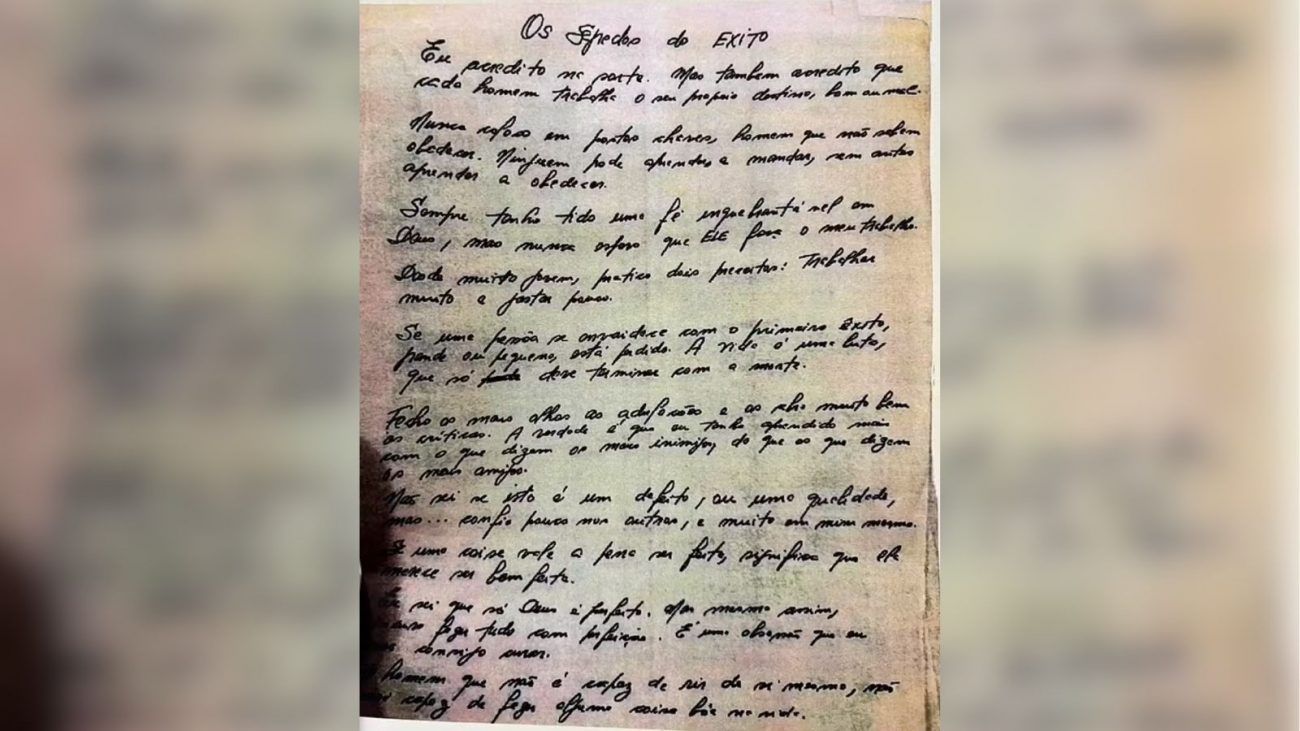 Os Segredos do EXITO
Eu acredito na sorte. Mas tambem acredito que
cada homem trabalha o seu proprio destino, bom ou mal.
Nunca coloco em postos chaves, homem que não sabem
obedecer. Ninguem pode aprender a mandar, sem antes
aprender a obedecer.
Sempre tenho tido uma fé inquebrantável em
Deus, mas nunca espero que ELE faça o meu trabalho.
Desde muito jovem, pratico dois preceitos: Trabalhar
muito e gastar pouco.
Se uma pessôa se envaidece com o primeiro êxito,
grande ou pequeno, está perdido. A vida é uma luta,
que só deve terminar com a morte.
Fecho os meus olhos as adulações e os abro muito bem
as criticas. A verdade é que eu tenho aprendido mais
com o que dizem os meus inimigos, do que os que dizem
os meus amigos.
Não sei se isto é um defeito, ou uma qualidade,
mas... confio pouco nos outros, e muito em mim mesmo.
Se uma coisa vale a pena ser feita, significa que ela
merece ser bem feita.
sei que só Deus é perfeito. Mas mesmo assim,
fazer tudo com perfeição. É uma obsessão que eu
consigo curar.
homem que não é capaz de rir de si mesmo, não
capaz de fazer alguma coisa bôa na vida.